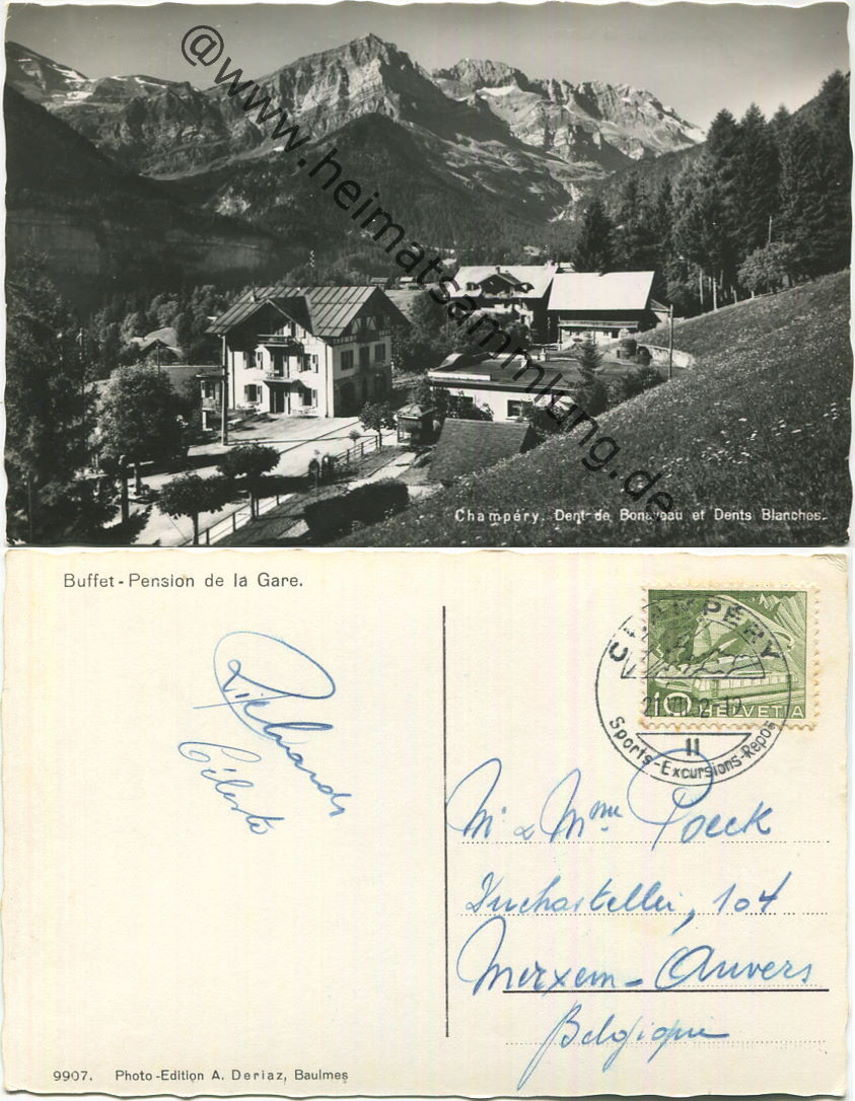 @www.heimatsammlung.de
Champéry. Dent de Bonaveau et Dents Blanches.
Buffet-Pension de la Gare.
CHAMPÉRY
10 HELVETIA
II
Sports-Excursions-Repos
Céleste
Mr & Mme Poeck
104
Merxem-Anvers
Belgique
9907. Photo-Edition A. Deriaz, Baulmes